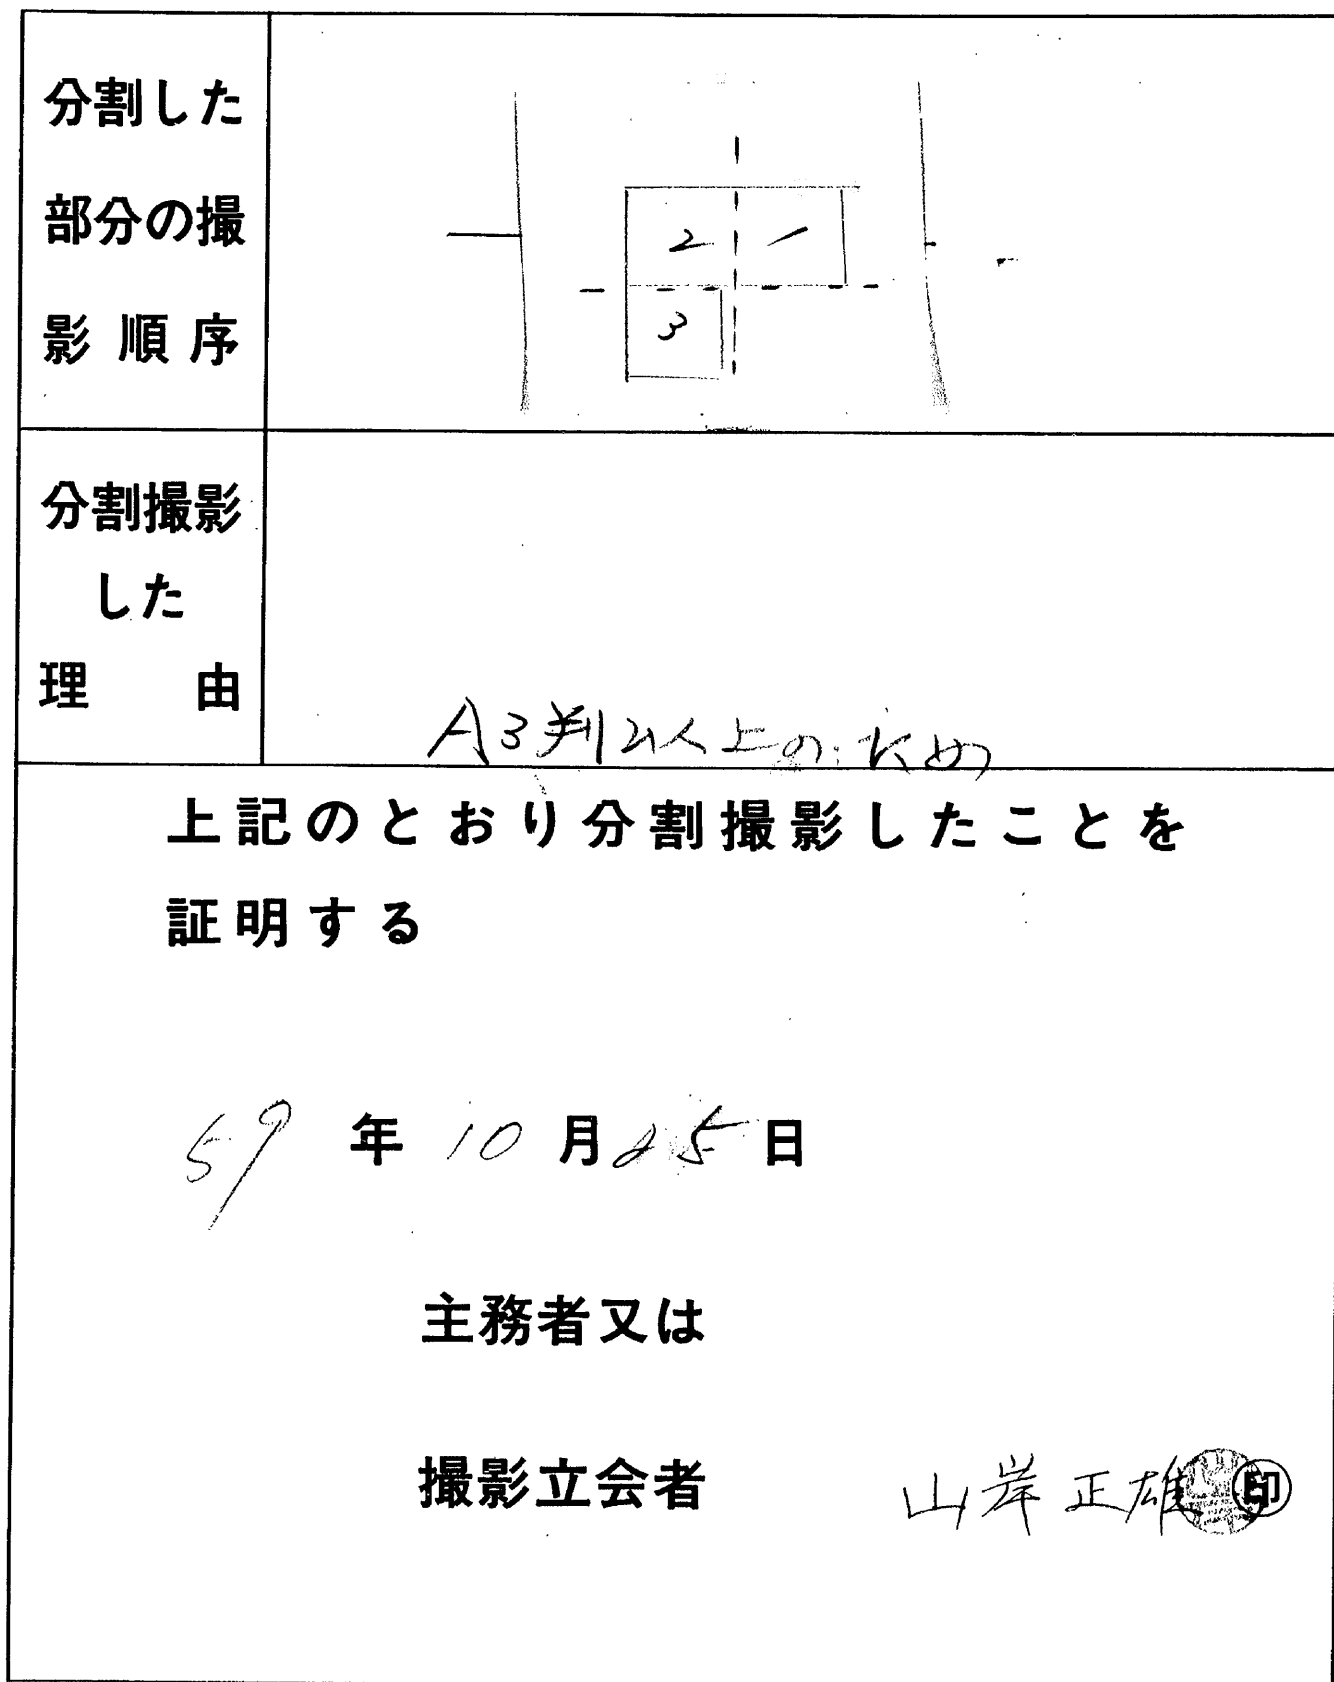 分割した
部分の撮
影順序
2 1
3
分割撮影
した
理由
A3判以上のため
上記のとおり分割撮影したことを
証明する
59年10月25日
主務者又は
撮影立会者 山岸正雄 印